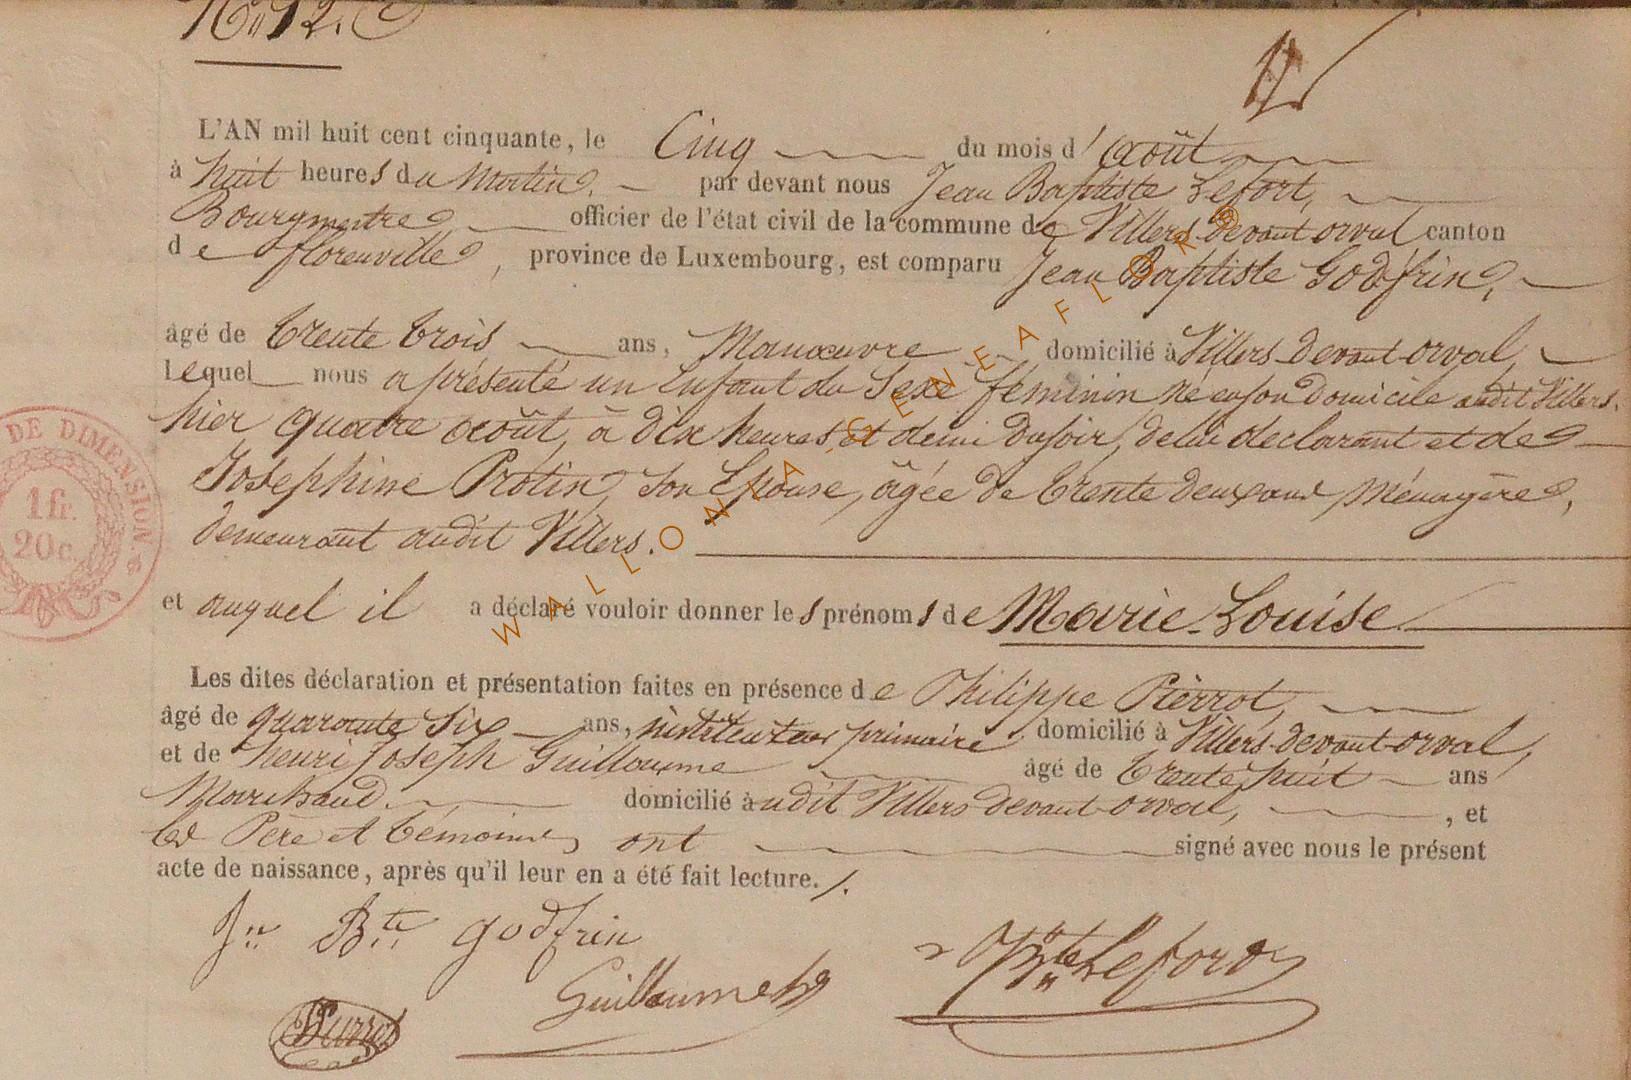 N° 12.
L'AN mil huit cent cinquante, le Cinq du mois d'août
à huit heures du Matin, par devant nous Jean Baptiste Lefort,
Bourgmestre officier de l'état civil de la commune de Villers devant orval canton
de florenville, province de Luxembourg, est comparu Jean Baptiste Godfrin,
âgé de trente trois ans, Manœuvre domicilié à Villers devant orval,
Lequel nous a présenté un Enfant du Sexe féminin né en son Domicile audit Villers,
hier quatre août, à dix heures et demi du soir, de lui déclarant et de
Josephine Protin, son Epouse, âgée de trente deux ans, Ménagère,
demeurant audit Villers.
et auquel il a déclaré vouloir donner les prénoms de Marie-Louise
Les dites déclaration et présentation faites en présence de Philippe Pierrot,
âgé de quarante Six ans, instituteur primaire domicilié à Villers-devant-orval,
et de henri Joseph Guillaume âgé de trente huit ans
Marchand. domicilié audit Villers devant orval, , et
les Père et témoins ont signé avec nous le présent
acte de naissance, après qu'il leur en a été fait lecture./.
Jn Bte godfrin
Guillaume hj
J Bte Lefort
Pierrot
DE DIMENSION.
1 fr.
20 c.
WALLONIA-GENEAFLORE®